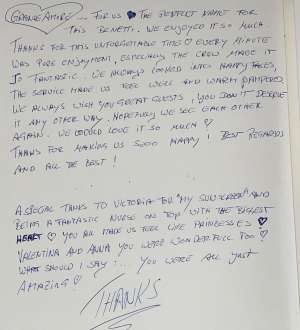 GRANDE AMORE ... FOR US ♥ THE PERFECT NAME FOR
THIS BENETTI. WE ENJOYED IT SO MUCH
THANKS FOR THIS UNFORGETTABLE TIME ♡ EVERY MINUTE
WAS PURE ENJOYMENT, ESPECIALLY THE CREW MADE IT
SO FANTASTIC. WE ALWAYS LOOKED INTO HAPPY FACES,
THE SERVICE MADE US FEEL WELL AND WARM PAMPERED.
WE ALWAYS WISH YOU GREAT GUESTS, YOU DON'T DESERVE
IT ANY OTHER WAY. HOPEFULLY WE SEE EACH OTHER
AGAIN. WE WOULD LOVE IT SO MUCH ♡
THANKS FOR MAKING US SOOO HAPPY! BEST REGARDS
AND ALL THE BEST!
A SPECIAL THANKS TO VICTORIA FOR "MY SUNSEEKER" AND
BEING A FANTASTIC NURSE ON TOP WITH THE BIGGEST
HEART ♡ YOU ALL MADE US FEEL LIKE PRINCESSES ♡
VALENTINA AND ANNA YOU WERE WONDERFULL TOO! ♡
WHAT SHOULD I SAY ... YOU WERE ALL JUST
AMAZING ♡
THANKS